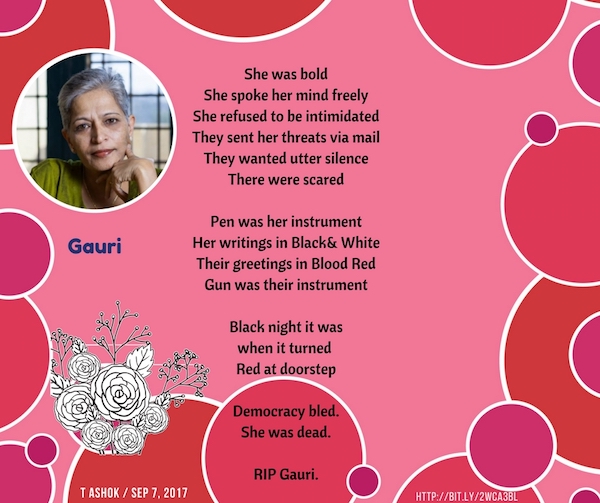 She was bold
She spoke her mind freely
She refused to be intimidated
They sent her threats via mail
They wanted utter silence
There were scared
Pen was her instrument
Her writings in Black& White
Their greetings in Blood Red
Gun was their instrument
Gauri
Black night it was
when it turned
Red at doorstep
Democracy bled.
She was dead.
RIP Gauri.
T ASHOK / SEP 7, 2017
HTTP://BIT.LY/2WCA3BL